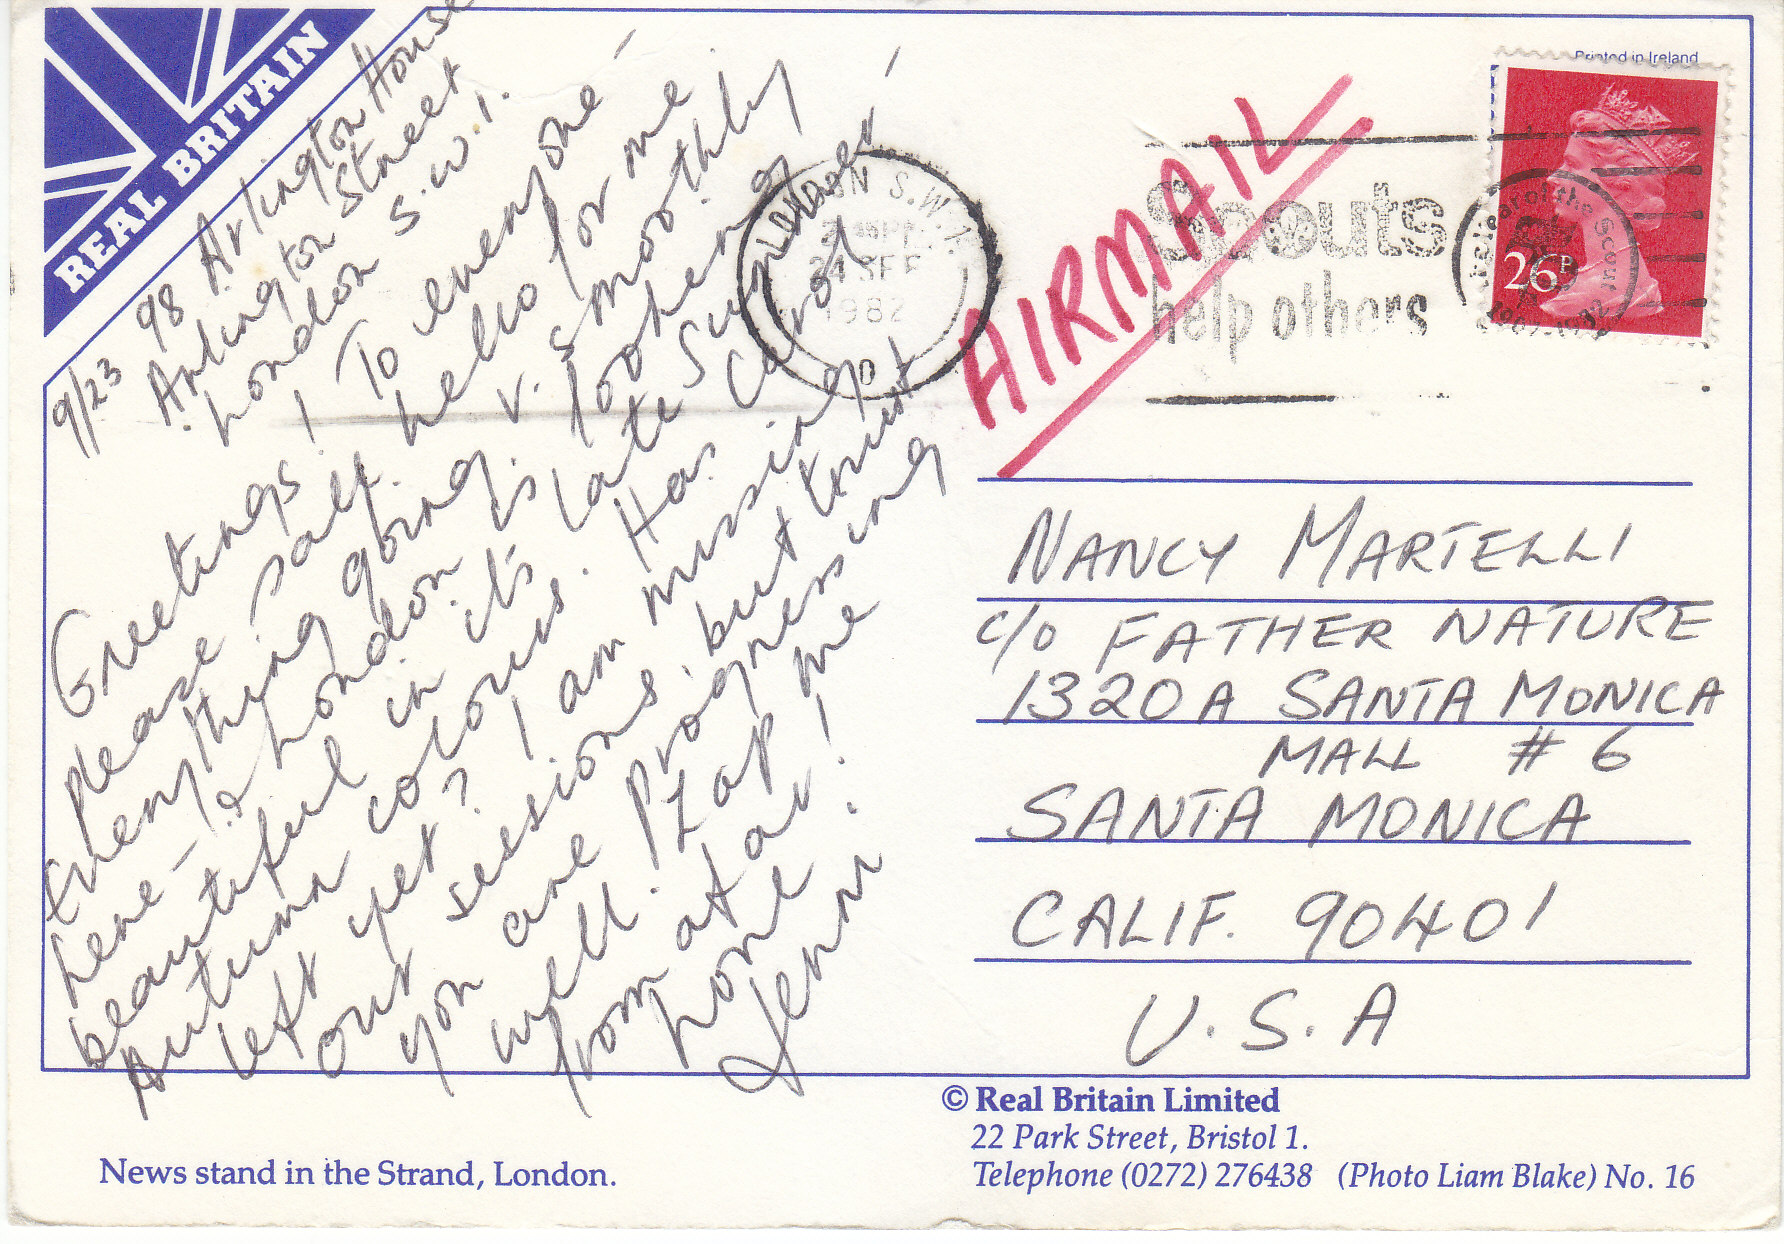 REAL BRITAIN
9/23 98 Arlington House
Arlington Street
London S.W.1.
Greetings! To everyone -
please say hello for me
Everything going v. smoothly
here - & London is looking
beautiful in it's late Summer -
Autumn colours. Has Carol
left yet? I am missing
our sessions, but trust
you are progressing
well. Zap me
from afar!
home
Jenni
Printed in Ireland
LONDON S.W.1
24 SEP
1982
Scouts
help others
Year of the Scout
1907-1982
26P
AIRMAIL
NANCY MARTELLI
c/o FATHER NATURE
1320A SANTA MONICA
MALL # 6
SANTA MONICA
CALIF. 90401
U.S.A
© Real Britain Limited
22 Park Street, Bristol 1.
Telephone (0272) 276438 (Photo Liam Blake) No. 16
News stand in the Strand, London.